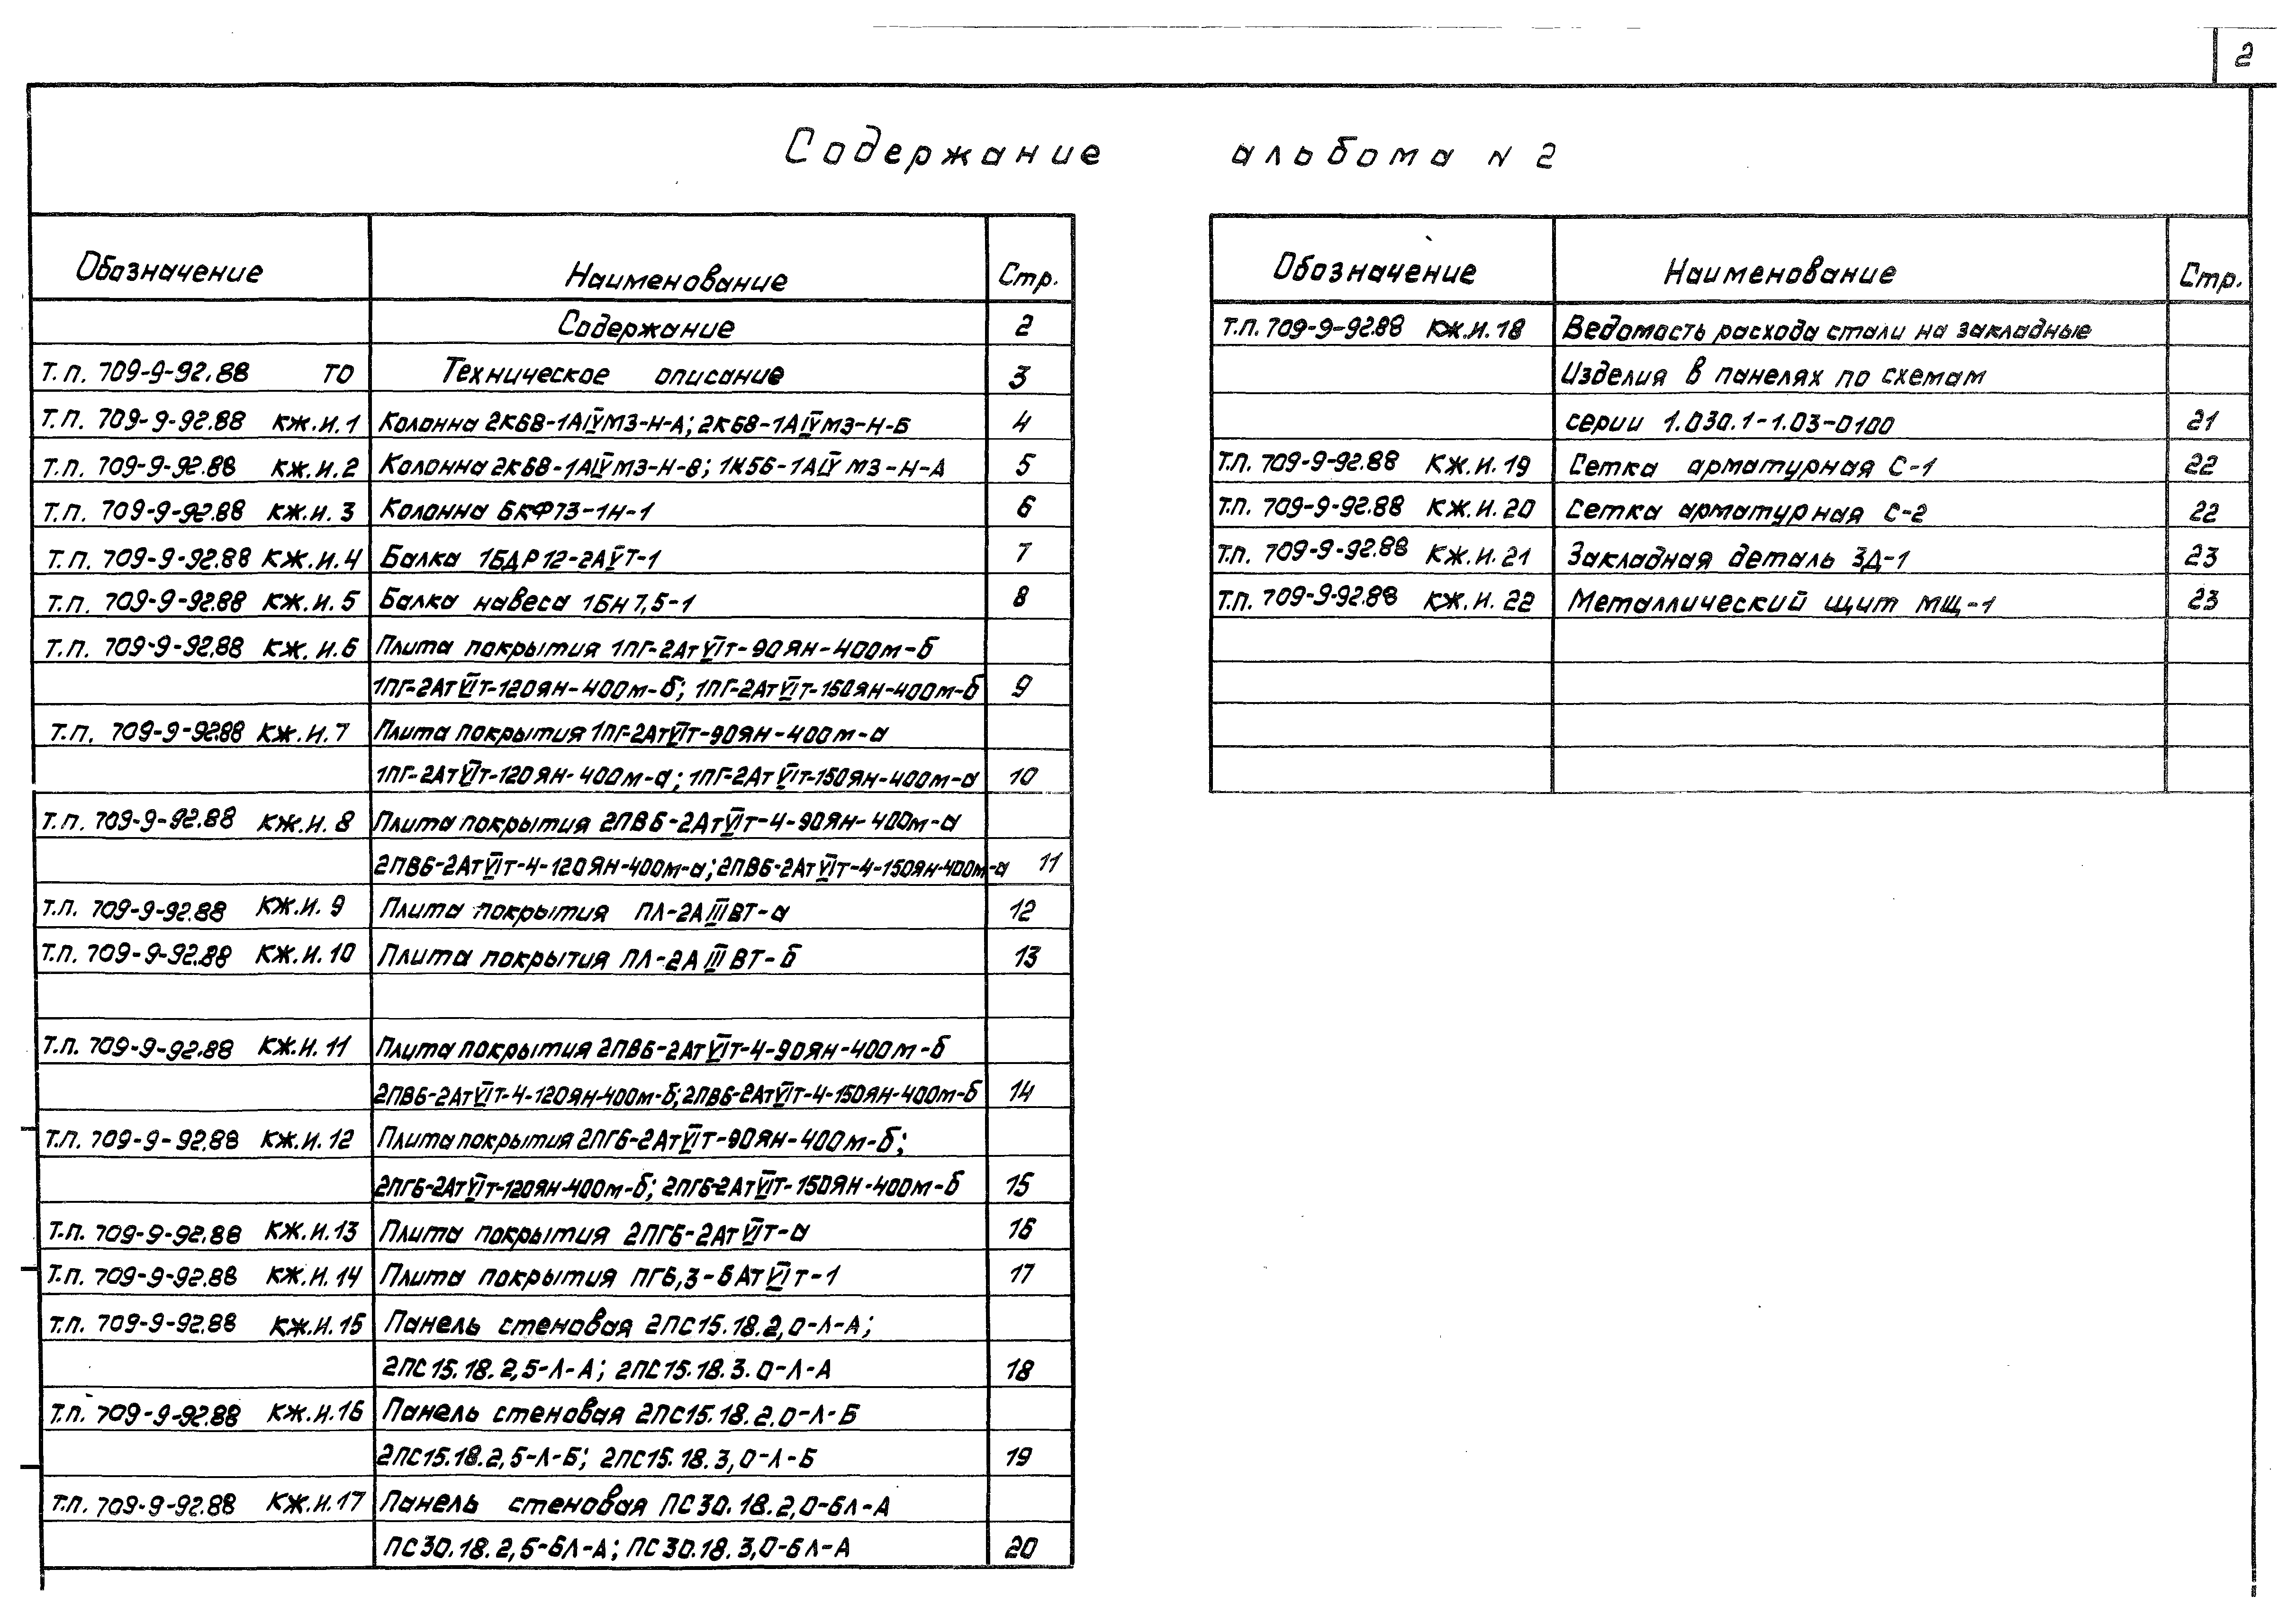 2
Содержание альбома N 2
Обозначение Наименование Стр.
Содержание 2
Т.п. 709-9-92.88 ТО Техническое описание 3
Т.п. 709-9-92.88 КЖ.И.1 Колонна 2К68-1АIVМ3-Н-А; 2К68-1АIVМ3-Н-Б 4
Т.п. 709-9-92.88 КЖ.И.2 Колонна 2К68-1АIVМ3-Н-В; 1К56-1АIV М3-Н-А 5
Т.п. 709-9-92.88 КЖ.И. 3 Колонна 6КФ73-1Н-1 6
Т.п. 709-9-92.88 КЖ.И.4 Балка 1БДР12-2АVТ-1 7
Т.п. 709-9-92.88 КЖ.И. 5 Балка навеса 1БН7,5-1 8
Т.п. 709-9-92.88 КЖ.И.6 Плита покрытия 1ПГ-2АтVIт-90ЯН-400м-б
1ПГ-2АтVIт-120ЯН-400м-б; 1ПГ-2АтVIт-150ЯН-400м-б 9
Т.п. 709-9-92.88 КЖ.И.7 Плита покрытия 1ПГ-2АтVIт-90ЯН-400м-а
1ПГ-2АтVIт-120ЯН-400м-а; 1ПГ-2АтVIт-150ЯН-400м-а 10
Т.п. 709-9-92.88 КЖ.И. 8 Плита покрытия 2ПВ6-2АтVIт-4-90ЯН-400м-а
2ПВ6-2АтVIт-4-120ЯН-400м-а; 2ПВ6-2АтVIт-4-150ЯН-400м-а 11
Т.п. 709-9-92.88 КЖ.И. 9 Плита покрытия ПЛ-2АIIIВТ-а 12
Т.п. 709-9-92.88 КЖ.И. 10 Плита покрытия ПЛ-2АIIIВТ-б 13
Т.п. 709-9-92.88 КЖ.И. 11 Плита покрытия 2ПВ6-2АтVIт-4-90ЯН-400м-б
2ПВ6-2АтVIт-4-120ЯН-400м-б; 2ПВ6-2АтVIт-4-150ЯН-400м-б 14
Т.п. 709-9-92.88 КЖ.И. 12 Плита покрытия 2ПГ6-2АтVIт-90ЯН-400м-б;
2ПГ6-2АтVIт-120ЯН-400м-б; 2ПГ6-2АтVIт-150ЯН-400м-б 15
Т.п. 709-9-92.88 КЖ.И.13 Плита покрытия 2ПГ6-2АтVIт-а 16
Т.п. 709-9-92.88 КЖ.И.14 Плита покрытия ПГ6,3-6АтVIт-1 17
Т.п. 709-9-92.88 КЖ.И.15 Панель стеновая 2ПС15.18.2,0-Л-А;
2ПС15.18.2,5-Л-А; 2ПС15.18.3.0-Л-А 18
Т.п. 709-9-92.88 КЖ.И.16 Панель стеновая 2ПС15.18.2.0-Л-Б
2ПС15.18.2,5-Л-Б; 2ПС15.18.3,0-Л-Б 19
Т.п. 709-9-92.88 КЖ.И.17 Панель стеновая ПС30.18.2,0-6Л-А
ПС30.18.2,5-6Л-А; ПС30.18.3,0-6Л-А 20
Обозначение Наименование Стр.
Т.п. 709-9-92.88 КЖ.И.18 Ведомость расхода стали на закладные
Изделия в панелях по схемам
серии 1.030.1-1.03-0100 21
Т.п. 709-9-92.88 КЖ.И.19 Сетка арматурная С-1 22
Т.п. 709-9-92.88 КЖ.И.20 Сетка арматурная С-2 22
Т.п. 709-9-92.88 КЖ.И.21 Закладная деталь ЗД-1 23
Т.п. 709-9-92.88 КЖ.И.22 Металлический щит МЩ-1 23